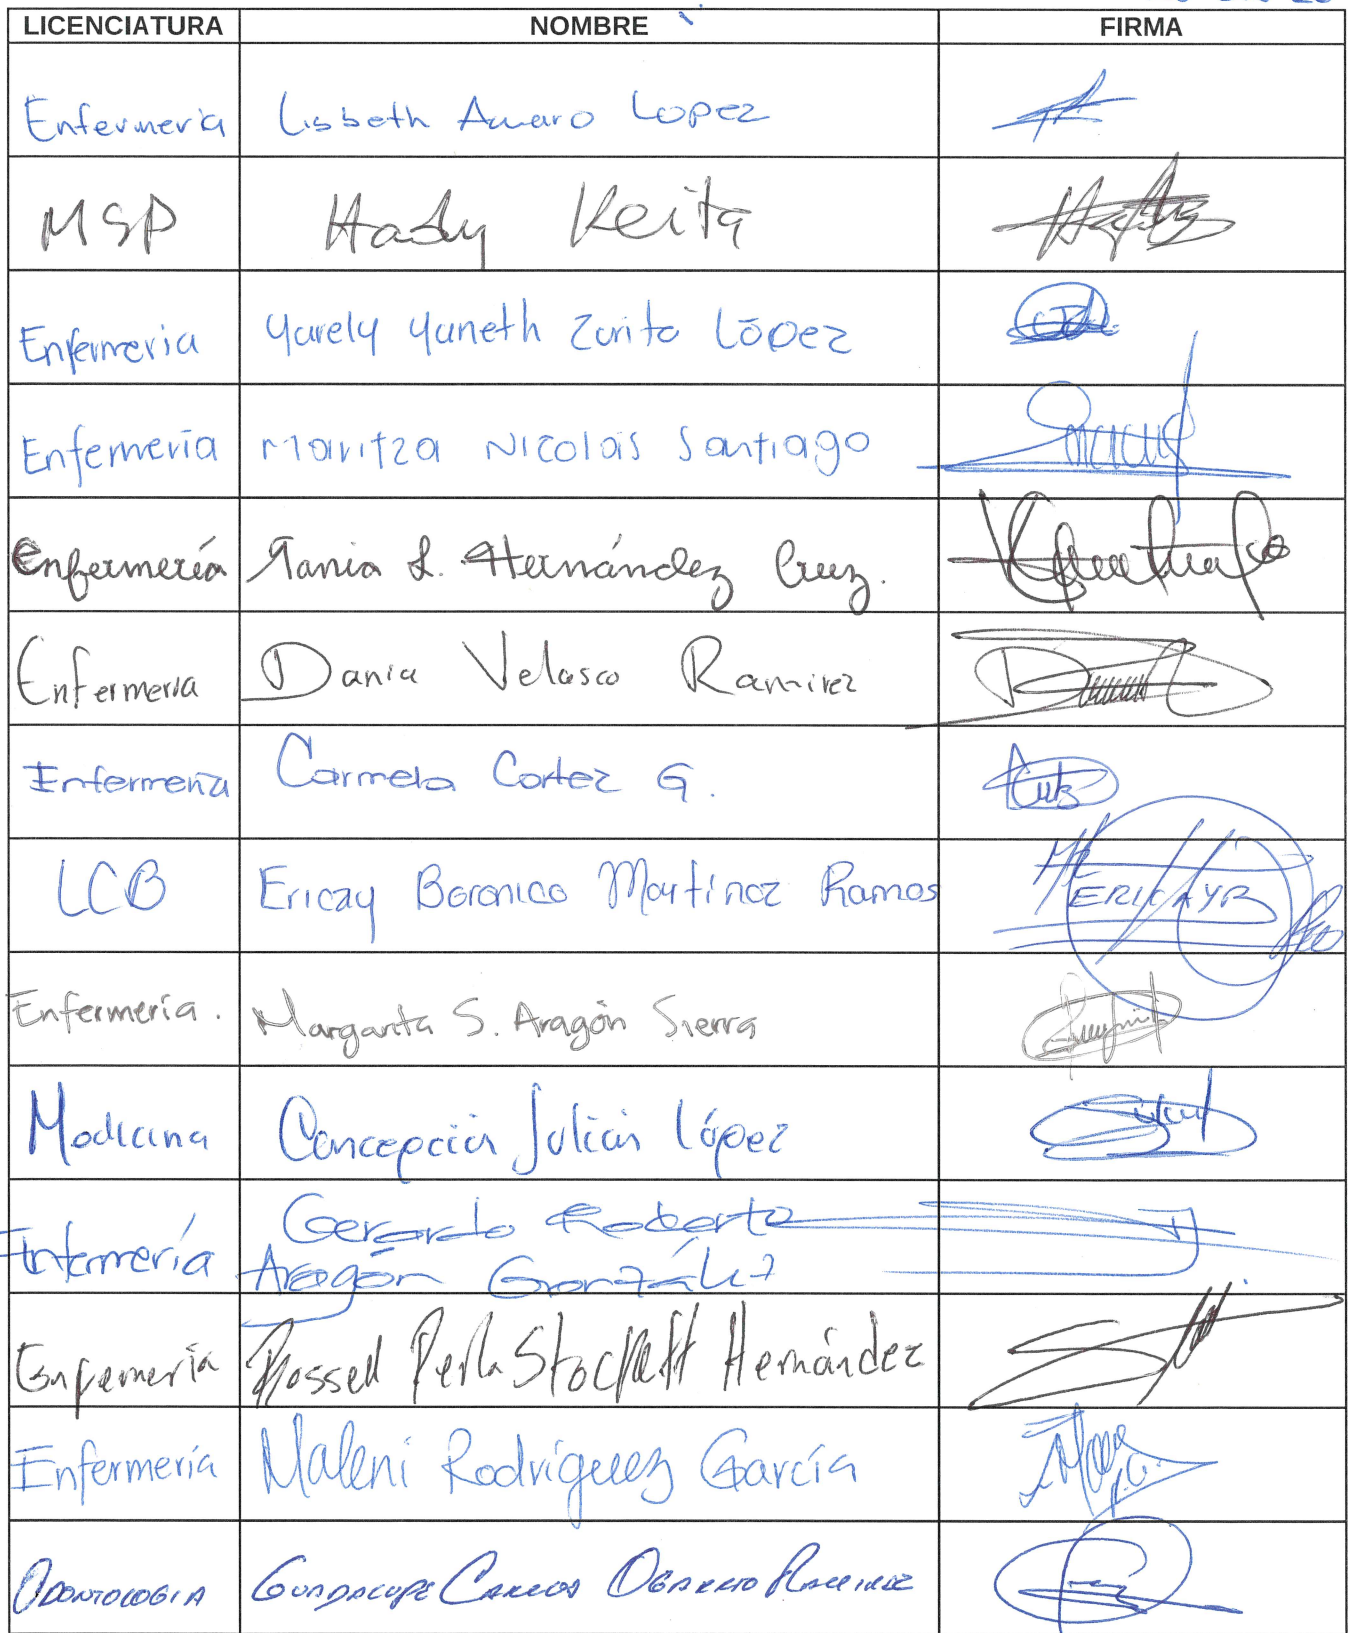 LICENCIATURA NOMBRE FIRMA
Enfermería Lisbeth Amaro Lopez
MSP Hady Keita
Enfermeria Yarely Yaneth Zurita López
Enfermería Maritza Nicolás Santiago
Enfermería Tania L. Hernández Cruz.
Enfermeria Dania Velasco Ramirez
Enfermería Carmela Cortez G.
LCB Ericzy Boronico Martínez Ramos
ERICAYR
Enfermería. Margarita S. Aragón Sierra
Medicina Concepción Julián López
Enfermería Gerardo Roberto
Aragón González
Enfermería Rossell Perla Stockett Hernández
Enfermería Maleni Rodríguez García
ODONTOLOGIA GUADALUPE CARLOS RAMIREZ